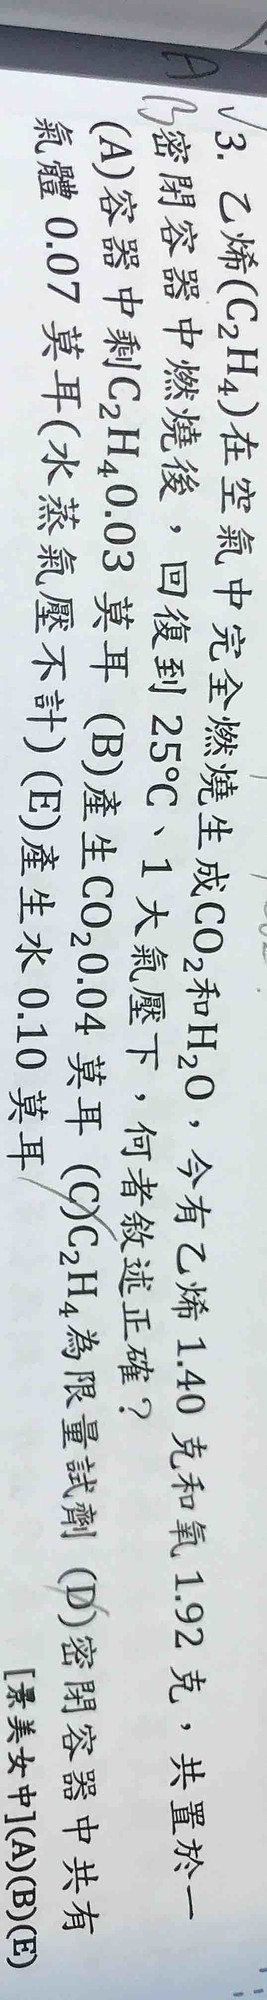 A
B
✓3. 乙烯(C₂H₄)在空氣中完全燃燒生成CO₂和H₂O，今有乙烯 1.40 克和氧 1.92 克，共置於一
密閉容器中燃燒後，回復到 25℃、1 大氣壓下，何者敘述正確？
(A)容器中剩C₂H₄0.03 莫耳 (B)產生CO₂0.04 莫耳 (C)C₂H₄為限量試劑 (D)密閉容器中共有
氣體 0.07 莫耳(水蒸氣壓不計) (E)產生水 0.10 莫耳
[景美女中](A)(B)(E)